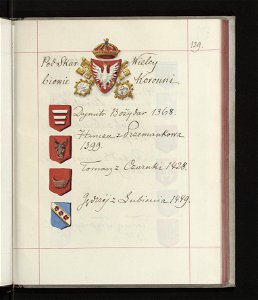 139.
Pod Skar Wielcy
biowie Koronni
Dymitr Bożydar 1368.
Hincza z Przemankowa
1399.
Tomasz z Czarnki 1428.
Jędrzej z Lubienia 1449.